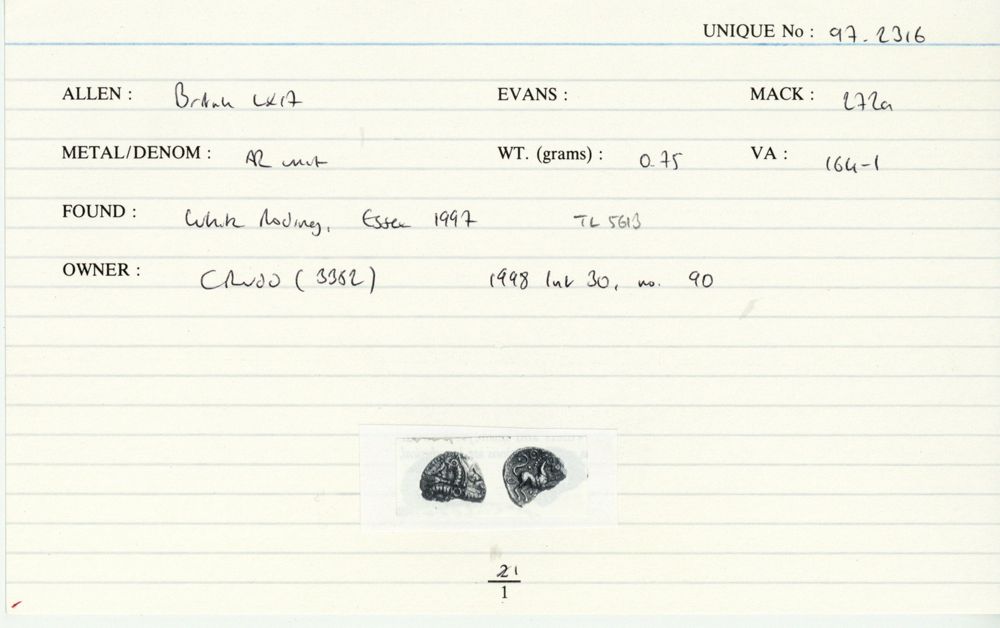 UNIQUE No : 97.2316
ALLEN : British LX17 EVANS : MACK : 272a
METAL/DENOM : AR unit WT. (grams) : 0.75 VA : 164-1
FOUND : White Roding, Essex 1997 TL 5613
OWNER : (3362) 1998 30, no. 90
21
1